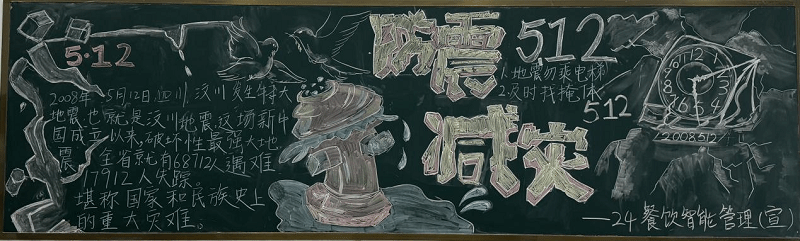 5·12
2008年5月12日四川汶川发生特大
地震,也就是汶川地震这场新中
国成立以来,破坏性最强大地
震 全省就有68712人遇难
17912人失踪
堪称国家和民族史上
的重大灾难。
防震
减灾
512
1.地震勿乘电梯
2.及时找掩体
512
12
1
2
3
4
5
6
7
8
9
10
11
2008512
——24.餐饮智能管理(宣)